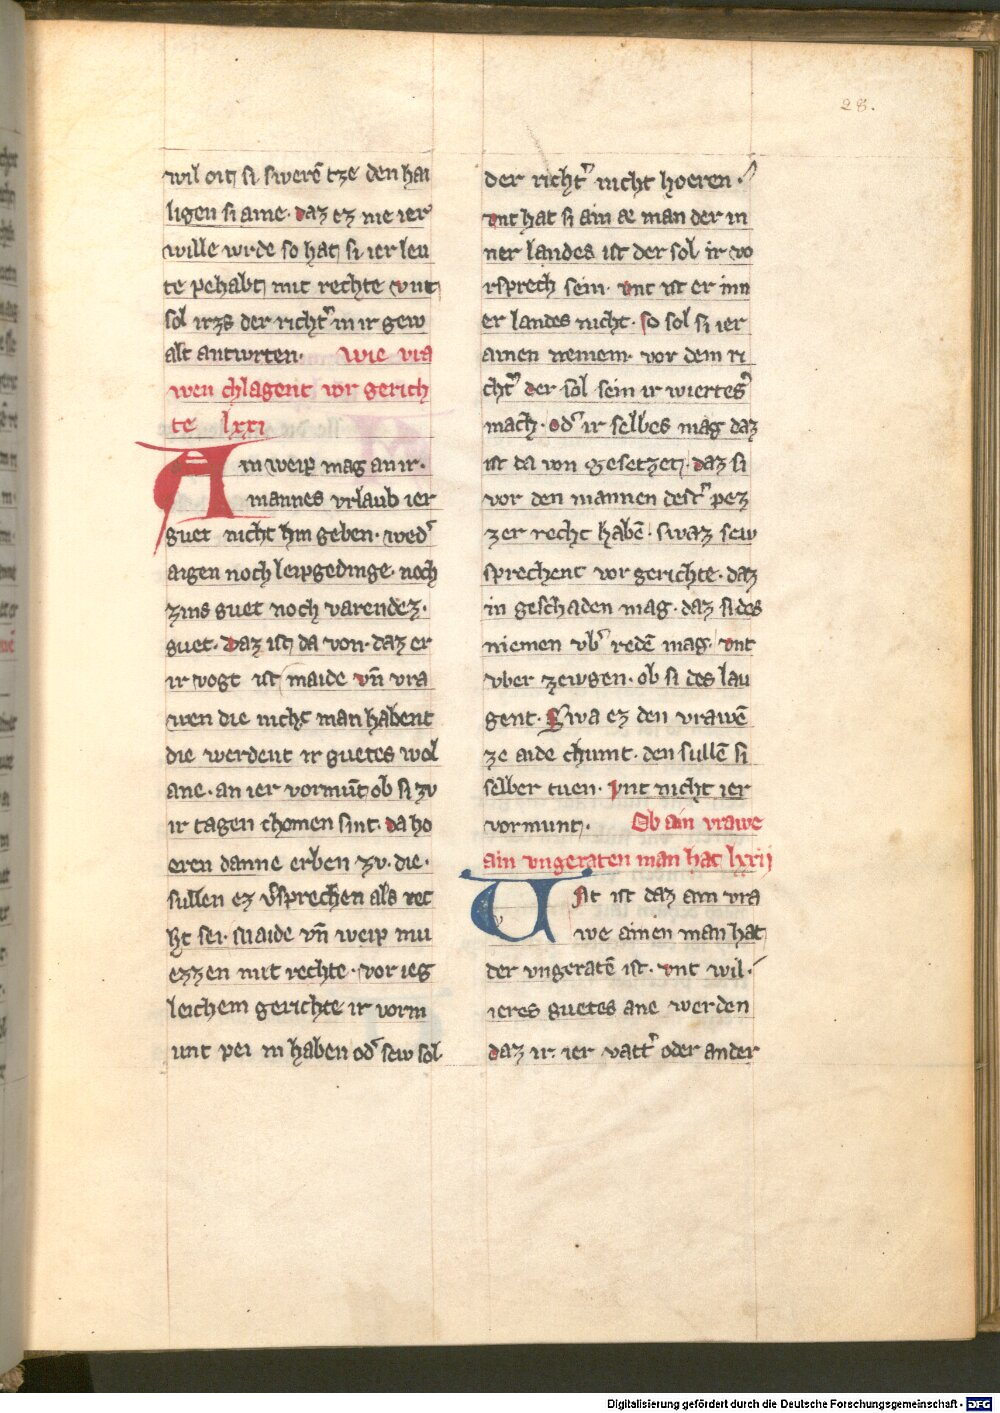 28.
wil oit si swerē tze den hai
ligen si aine. daz ez nie ier
wille wrde so hat si ier leu
te pehabt mit rechte vnt
sol irzs der richt' in ir gew
alt antwrten. wie vra
wen chlagent vor gerich
te lxxi
Ain weip mag an ir.
mannes vrlaub ier
guet nicht hin geben. wed'
aigen noch leipgedinge. noch
zins guet noch varendez.
guet. daz ist da von. daz er
ir vogt ist maide vn̄ vra
wen die nicht man habent
die werdent ir guetes wol
ane. an ier vormūt ob si zv
ir tagen chomen sint. da ho
eren danne erben zv. die.
sullen ez v'sprechen als rec
ht sei. swaide vn̄ weip mu
ezzen mit rechte. vor ieg
leichem gerichte ir vorm
unt pei in haben od' sew sol
der richt' nicht hoeren.
vnt hat si ain æ man der in
ner landes ist der sol ir vo
rsprech sein. vnt ist er inn
er landes nicht. so sol si ier
ainen nemem. vor dem ri
cht' der sol sein ir wiertes'
mach. od' ir selbes mag daz
ist da von gesetzet. daz si
vor den mannen dest' pez
zer recht habē. swaz sew
sprechent vor gerichte. daz
in geschaden mag. daz si des
niemen vb' redē mag. vnt
vber zewgen. ob si des lau
gent. Swa ez den vrawē
ze aide chumt. den sullē si
selber tuen. vnt nicht ier
vormunt. Ob ain vrawe
ain vngeraten man hat lxxij
Ist ist daz ain vra
we ainen man hat
der vngeratē ist. vnt wil.
ieres guetes ane werden
daz ir. ier vatt' oder ander
Digitalisierung gefördert durch die Deutsche Forschungsgemeinschaft - DFG